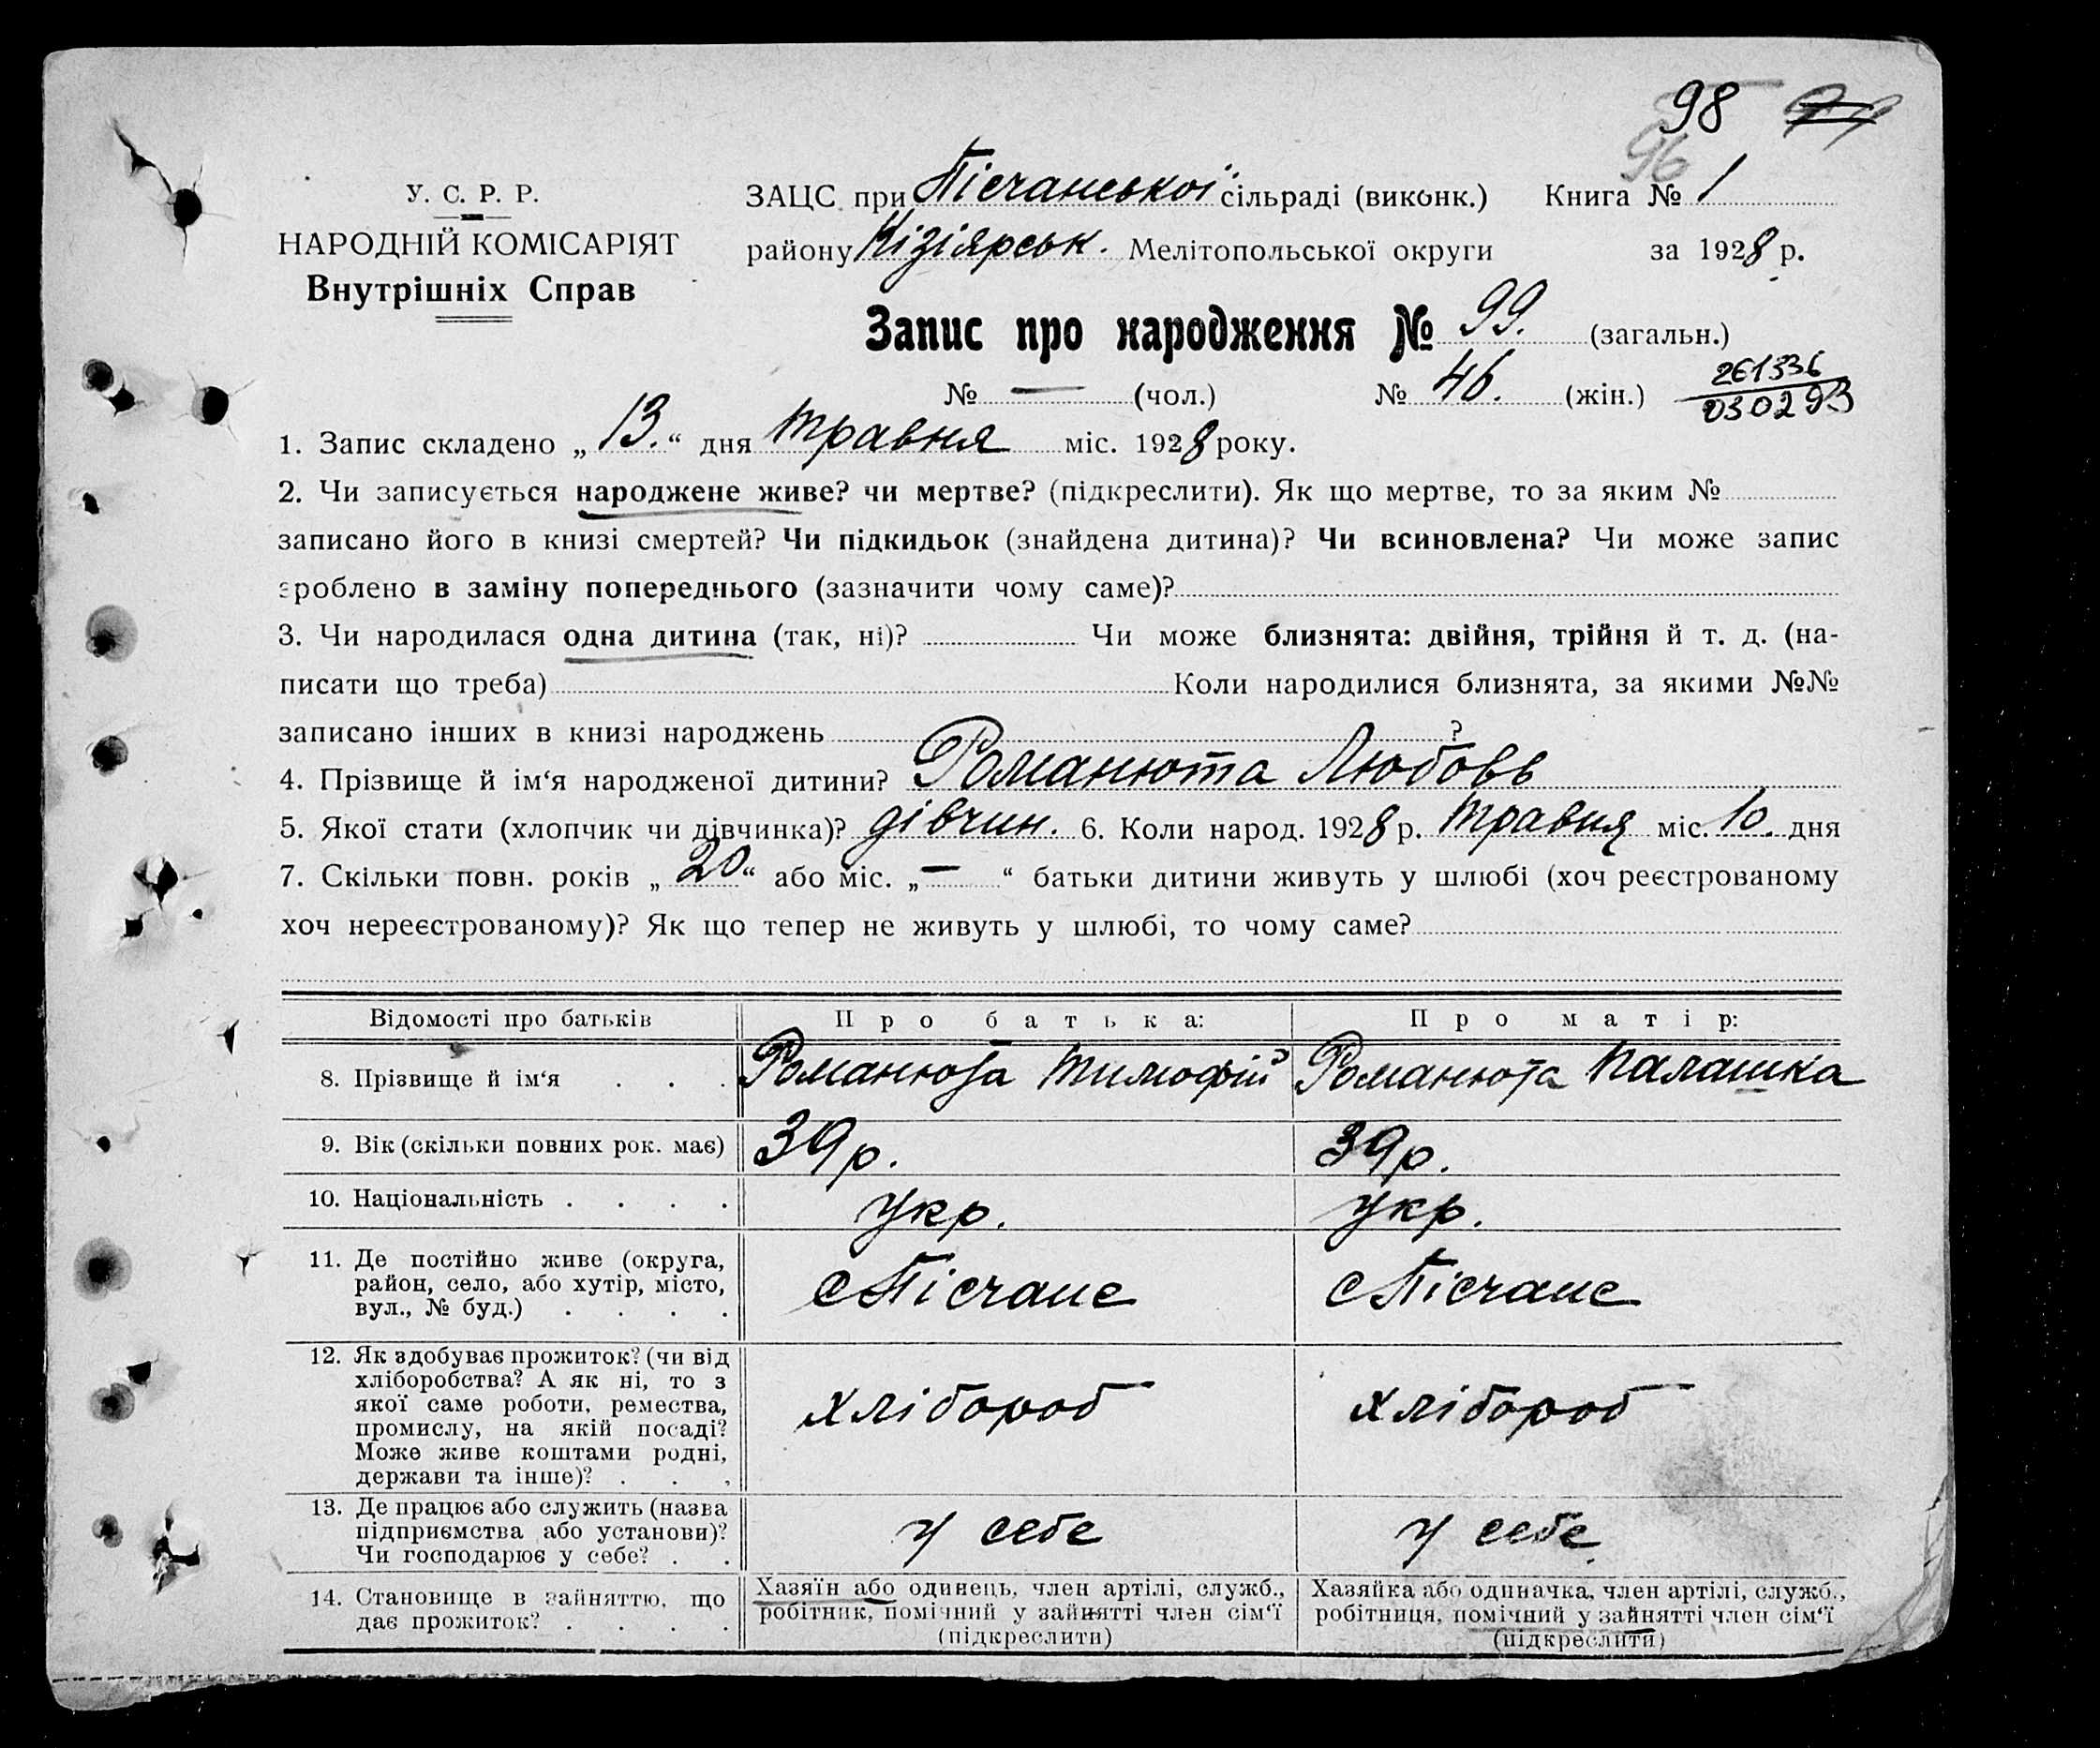 98 97
96
У. С. Р. Р.
НАРОДНІЙ КОМІСАРІЯТ
Внутрішніх Справ
ЗАЦС при Пісчанської сільраді (виконк.) Книга № 1
району Кізіярськ. Мелітопольської округи за 1928 р.
Запис про народження № 99. (загальн.)
№ — (чол.) № 46. (жін.)
261336
030293
1. Запис складено „ 13. “ дня травня міс. 1928 року.
2. Чи записується народжене живе? чи мертве? (підкреслити). Як що мертве, то за яким №
записано його в книзі смертей? Чи підкидьок (знайдена дитина)? Чи всиновлена? Чи може запис
зроблено в заміну попереднього (зазначити чому саме)?
3. Чи народилася одна дитина (так, ні)? Чи може близнята: двійня, трійня й т. д. (на-
писати що треба) Коли народилися близнята, за якими №№
записано інших в книзі народжень ?
4. Прізвище й ім‘я народженої дитини? Романюта Любовь
5. Якої стати (хлопчик чи дівчинка)? дівчин. 6. Коли народ. 1928 р. травня міс. 10. дня
7. Скільки повн. років „ 20 “ або міс. „ — “ батьки дитини живуть у шлюбі (хоч реєстрованому
хоч нереєстрованому)? Як що тепер не живуть у шлюбі, то чому саме?
Відомості про батьків Про батька: Про матір:
8. Прізвище й ім‘я . . . Романюта Тимофій Романюта Палашка
9. Вік (скільки повних рок. має) 39 р. 39 р.
10. Національність . . . . укр. укр.
11. Де постійно живе (округа,
район, село, або хутір, місто,
вул., № буд.) . . . .
с Пісчане с Пісчане
12. Як здобуває прожиток? (чи від
хліборобства? А як ні, то з
якої саме роботи, ремества,
промислу, на якій посаді?
Може живе коштами родні,
держави та інше)? . . .
хлібороб хлібороб
13. Де працює або служить (назва
підприємства або установи)?
Чи господарює у себе? . .
у себе у себе
14. Становище в зайняттю, що
дає прожиток? . . . .
Хазяїн або одинець, член артілі, служб.,
робітник, помічний у зайнятті член сім‘ї
(підкреслити)
Хазяйка або одиначка, член артілі, служб.,
робітниця, помічний у зайнятті член сім‘ї
(підкреслити)